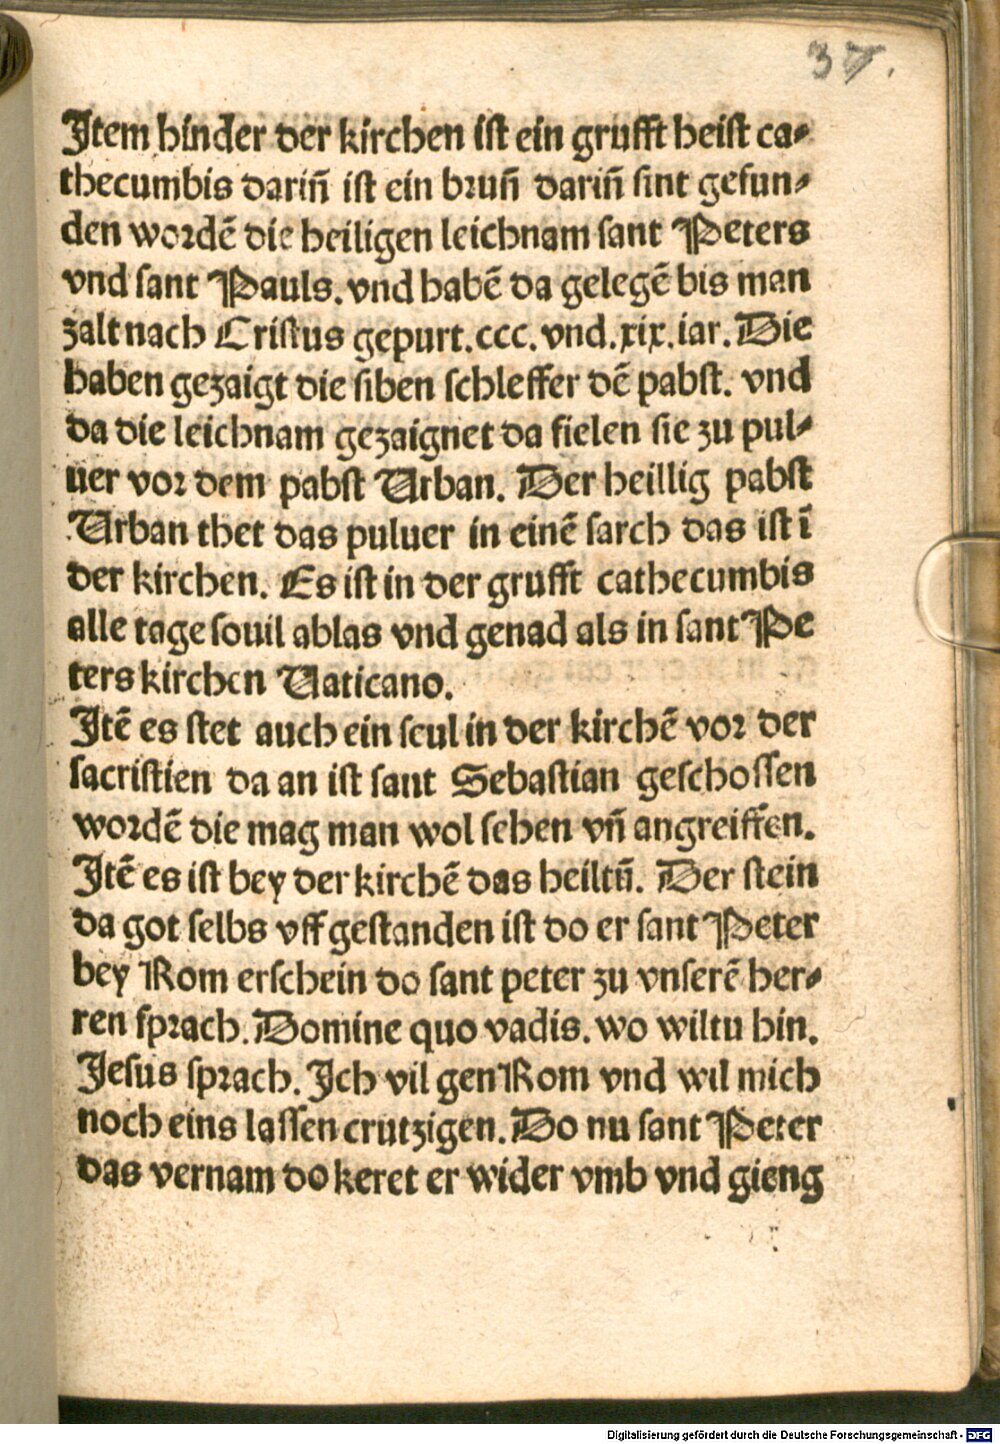 37.
Jtem hinder der kirchen ist ein grufft heist ca⸗
thecumbis darin̄ ist ein brun̄ darin̄ sint gefun⸗
den wordē die heiligen leichnam sant Peters
vnd sant Pauls. vnd habē da gelegē bis man
zalt nach Cristus gepurt. ccc. vnd. xix. iar. Die
haben gezaigt die siben schleffer dē pabst. vnd
da die leichnam gezaignet da fielen sie zu pul⸗
uer vor dem pabst Urban. Der heillig pabst
Urban thet das puluer in einē sarch das ist ī
der kirchen. Es ist in der grufft cathecumbis
alle tage souil ablas vnd genad als in sant Pe
ters kirchen Uaticano.
Jtē es stet auch ein seul in der kirchē vor der
sacristien da an ist sant Sebastian geschossen
wordē die mag man wol sehen vn̄ angreiffen.
Jtē es ist bey der kirchē das heiltū. Der stein
da got selbs vff gestanden ist do er sant Peter
bey Rom erschein do sant peter zu vnserē her⸗
ren sprach. Domine quo vadis. wo wiltu hin.
Jesus sprach. Jch vil gen Rom vnd wil mich
noch eins lassen crutzigen. Do nu sant Peter
das vernam do keret er wider vmb vnd gieng
Digitalisierung gefördert durch die Deutsche Forschungsgemeinschaft - DFG